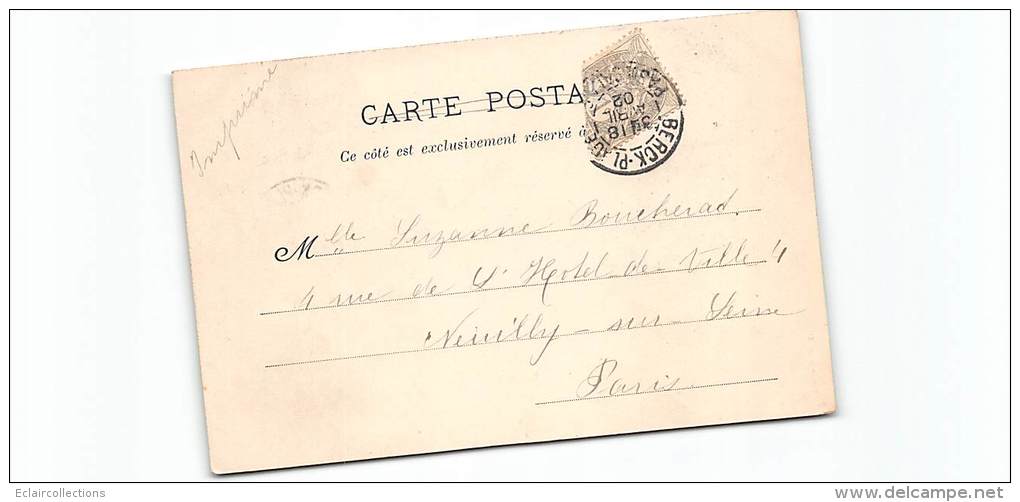 Imprimé
CARTE POSTA
Ce côté est exclusivement réservé à
BERCK-PLAGE
PAS
18
AVRIL
02
Mlle Suzanne Boucherad.
4 rue de l'Hotel-de-Ville 4
Neuilly-sur-Seine
Paris
Eclaircollections
www.delcampe.net